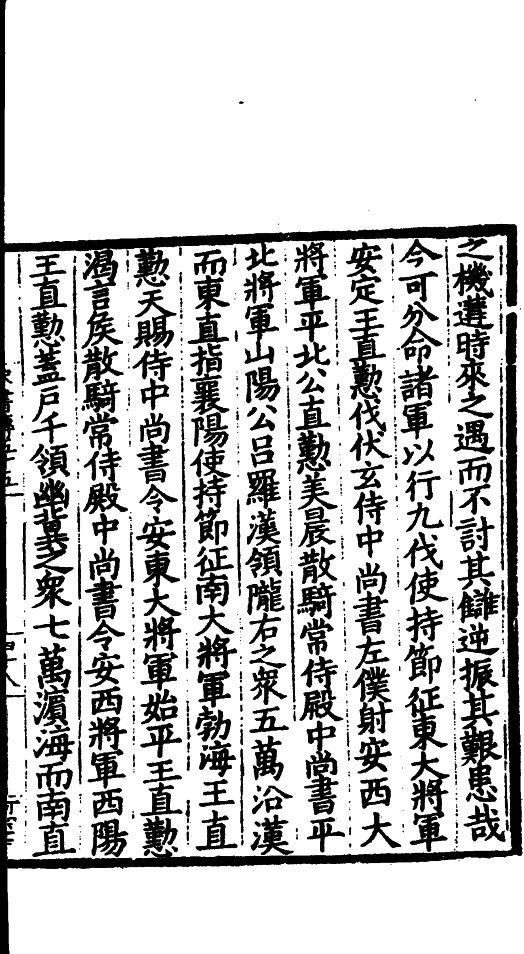 之機遘時來之遇而不討其讎逆振其艱患哉
今可分命諸軍以行九伐使持節征東大將軍
安定王直懃伐伏玄侍中尚書左僕射安西大
將軍平北公直懃美晨散騎常侍殿中尚書平
北將軍山陽公呂羅漢領隴右之衆五萬沿漢
而東直指襄陽使持節征南大將軍勃海王直
懃天賜侍中尚書令安東大將軍始平王直懃
渴言侯散騎常侍殿中尚書令安西將軍西陽
王直懃蓋戶千領幽冀之衆七萬濱海而南直